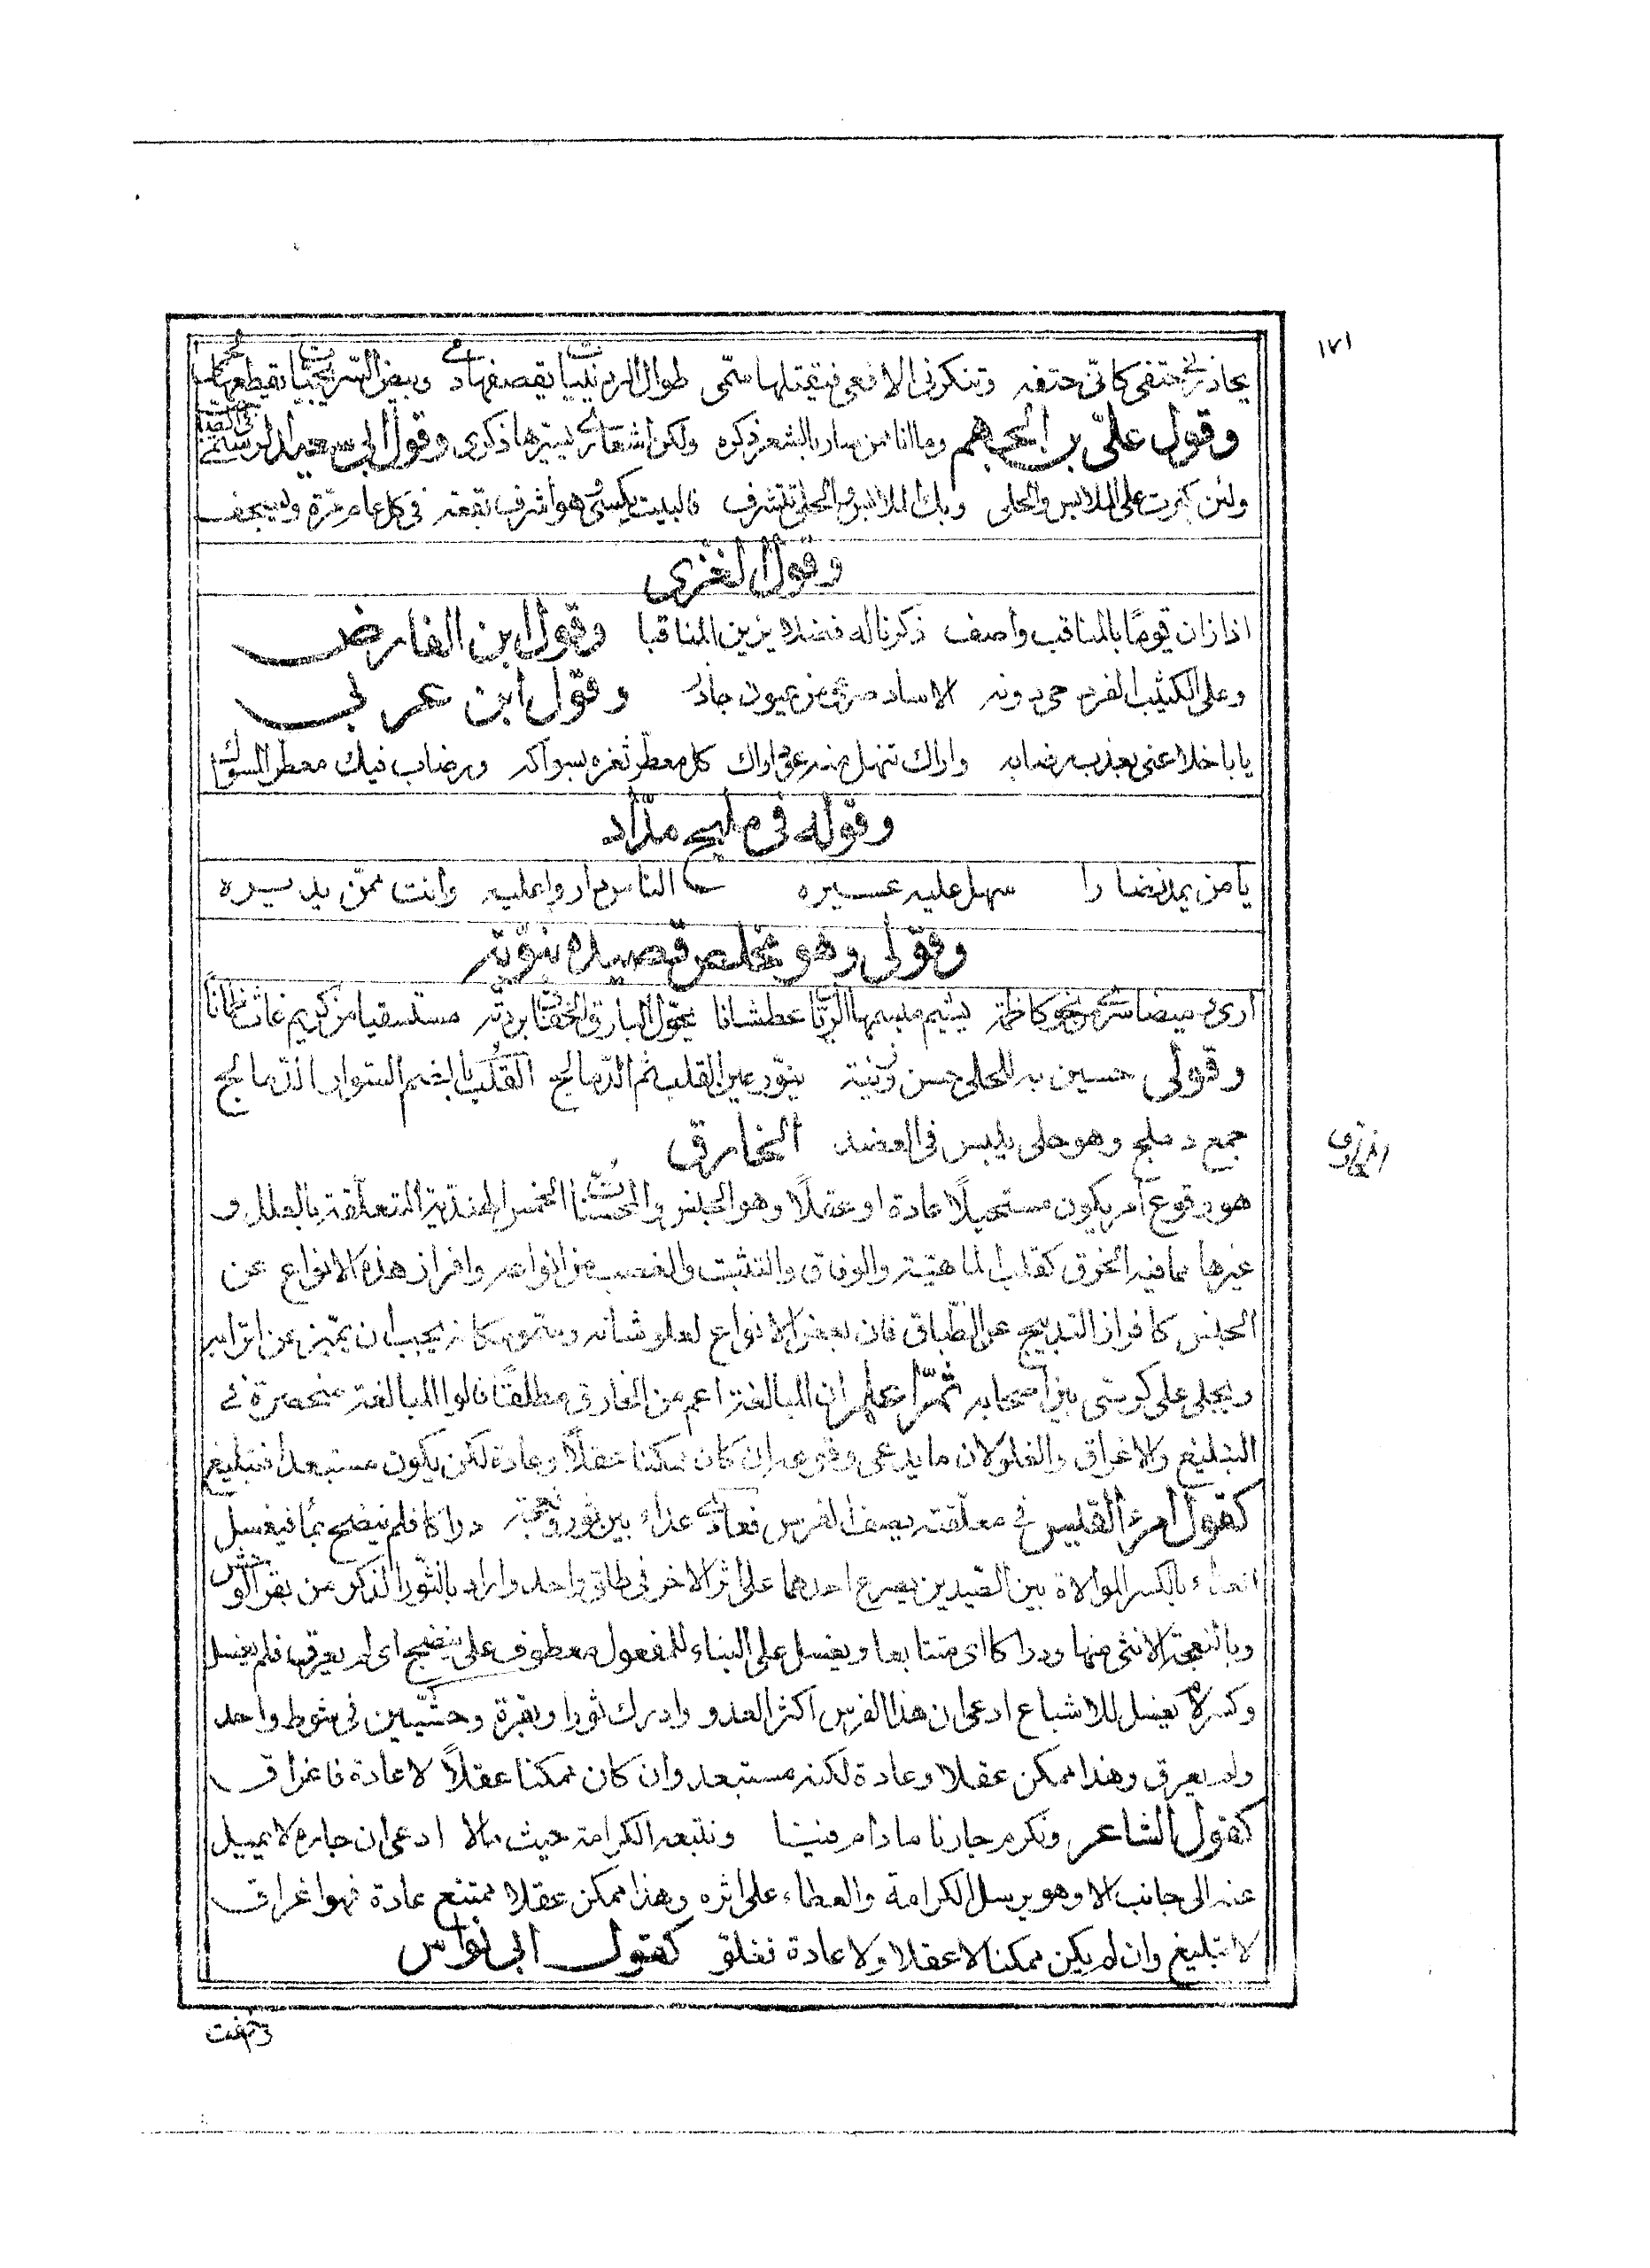 ١٧١
يحاذرني حتفي كاني حتفه وتنكزني الافعى فيقتلها سمّى طوال الردينيات يقصفها دمى وبيض السريجيات يقطعها لحمى
وقول علىّ بن الجهم وما انا ممن سار بالشعر ذكره ولكن اشعارى يسيّرها ذكرى وقول ابى سعيد الرستمى
ولئن كبرت على الملابس والحلى وبك الملابس والحلى تتشرف فالبيت يكسى وهو اشرف بقعة فى كل عام مرّة ويسجف
وقول الغزى
اذا زان قومًا بالمناقب واصف ذكرنا له فضلا يزين المناقبا وقول ابن الفارض
وعلى الكثيب الفرد حى دونه الاساد صرعى من عيون جاذر وقول ابن عربى
يا باخلا عنى بعذب رضابه واراك تنهل منه عود اراك كل معطر ثغره بسواكه ورضاب فيك معطر المسواك
وقوله فى مليح مدّاد
يا من يمد نضارا سهل عليه عسيره الناس داروا عليه وانت ممّن يديره
وقولى وهو مخلص قصيدة نبويّة
ارى وميضا سرى من نحو كاظمة يشيم مبسمها الريّان عطشانا يحوّل البارق الخفّاق بردته مستسقيا من كريم غاث ظمآنا
وقولى حسين به للحلى حسن وزينة ينوّر عين القلب ثم الدمالج القلب بالضم السوار الدّمالج
جمع دملج وهو حلى يلبس فى العضد الخارق
الخارق
هو وقوع أمر يكون مستحيلًا عادة او عقلًا وهو الجنس والمحسّنات الخمس الهندية المتعلّقة بالعلل و
غيرها مما فيه الخرق كقلب الماهيّة والوفاق والتثبت والغصب من انواعه وافراز هذه الانواع عن
الجنس كافراز التدبيج عن الطّباق فان بعض الانواع لعلو شانه وسموّ مكانه يجب ان يميّز عن اترابه
ويجلى على كرسى بين اصحابه ثمّ اعلم ان المبالغة اعم من الخارق مطلقًا قالوا المبالغة منحصرة فى
التبليغ والاغراق والغلو لان ما يدعى وقوعه ان كان ممكنا عقلًا وعادة لكن يكون مستبعدا فتبليغ
كقول امرء القيس فى معلّقته يصف الفرس فعادى عداء بين ثور ونعجة دراكا فلم ينضح بمأ فيغسل
العداء بالكسر الموالاة بين الصيدين يصرع احدهما على اثر الاخر فى طلق واحد واراد بالثور الذكر من بقر الوحش
وبالنعجة الانثى منها ودراكا اى متتابعا ويغسل على البناء للمفعول معطوف على ينضح اى لم يعرق فلم يغسل
وكسر لام يغسل للاشباع ادعى ان هذا الفرس اكثر العدو وادرك ثورا وبقرة وحشيّين فى شوط واحد
ولم يعرق وهذا ممكن عقلا وعادة لكنه مستبعد وان كان ممكنا عقلًا لا عادة فاغراق
كقول الشاعر ونكرم جارنا ما دام فينا ونتبعه الكرامة حيث مالا ادعى ان جاره لا يميل
عنه الى جانب الا وهو يرسل الكرامة والعطاء على اثره وهذا ممكن عقلا ممتنع عادة فهو اغراق
لا تبليغ وان لم يكن ممكنا لا عقلا ولا عادة فغلو كقول ابى نواس